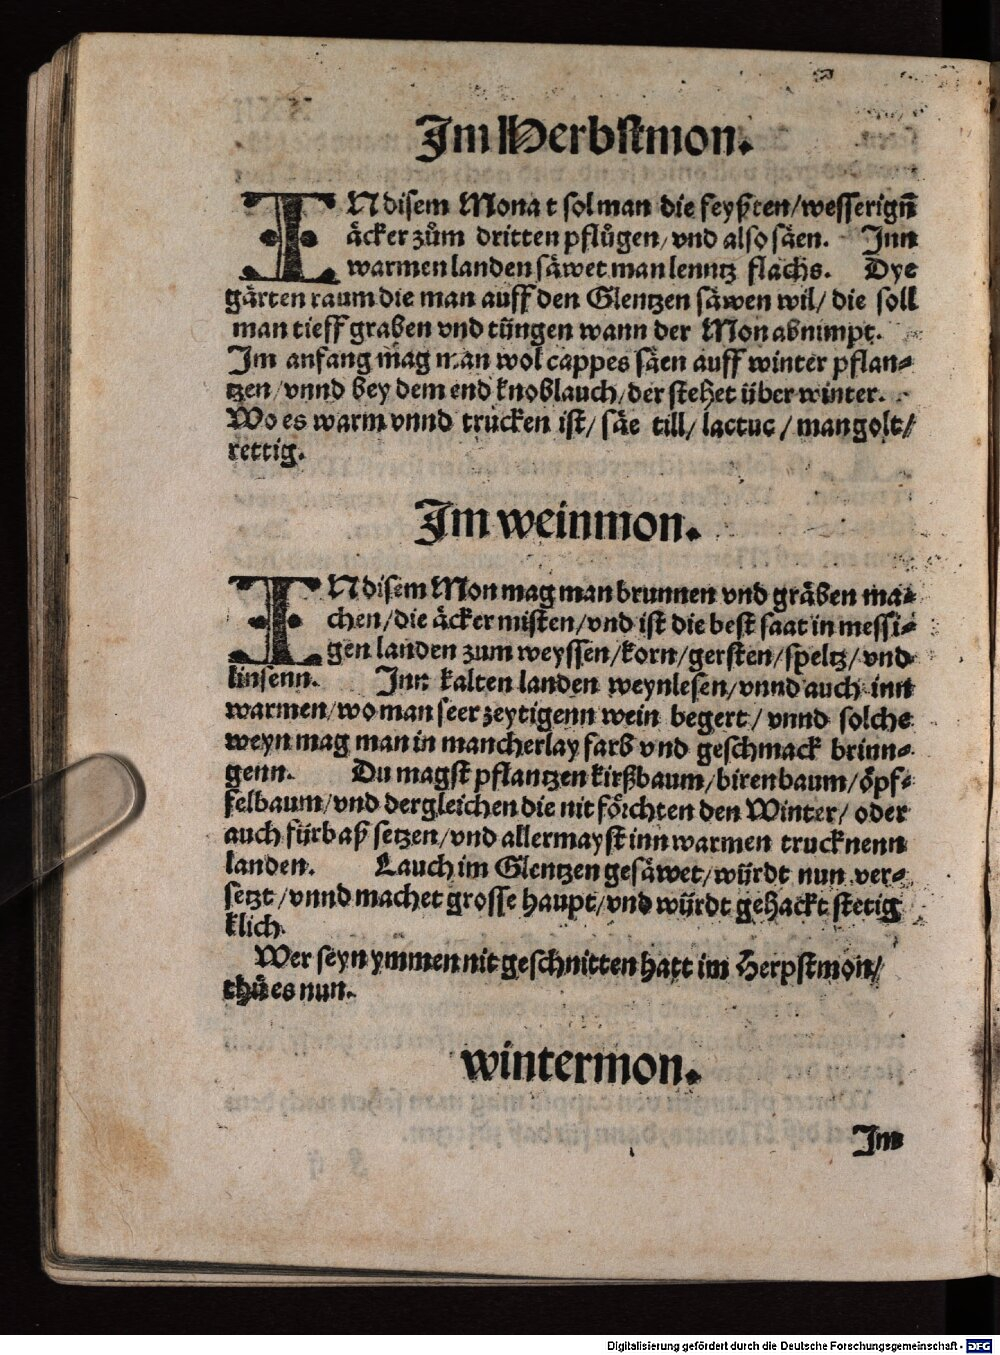 Im Herbstmon.
INdisem Monat sol man die feyßten/wesserigñ
äcker zům dritten pflůgen/vnd also säen. Inn
warmen landen säwet man lenntz flachs. Dye
gärten raum die man auff den Glentzen säwen wil/ die soll
man tieff graben vnd tüngen wann der Mon abnimpt.
Im anfang mag man wol cappes säen auff winter pflan-
tzen/vnnd bey dem end knoblauch/der stehet über winter.
Wo es warm vnnd trucken ist/ säe till/ lactuc/ mangolt/
rettig.
Im weinmon.
INdisem Mon mag man brunnen vnd gräben ma-
chen/die äcker misten/vnd ist die best saat in messi-
gen landen zum weyssen/korn/gersten/speltz/vnd
linsenn. Inn kalten landen weynlesen/vnnd auch inn
warmen/wo man seer zeytigenn wein begert/ vnnd solche
weyn mag man in mancherlay farb vnd geschmack brinn-
genn. Du magst pflantzen kirßbaum/birenbaum/öpf-
felbaum/vnd dergleichen die nit förchten den Winter/ oder
auch fürbaß setzen/vnd allermayst inn warmen trucknenn
landen. Lauch im Glentzen gesäwet/würdt nun ver-
setzt/vnnd machet grosse haupt/vnd würdt gehackt stetig
klich.
Wer seyn ymmen nit geschnitten hatt im Herpstmon/
thů es nun.
wintermon.
Im
Digitalisierung gefördert durch die Deutsche Forschungsgemeinschaft - DFG